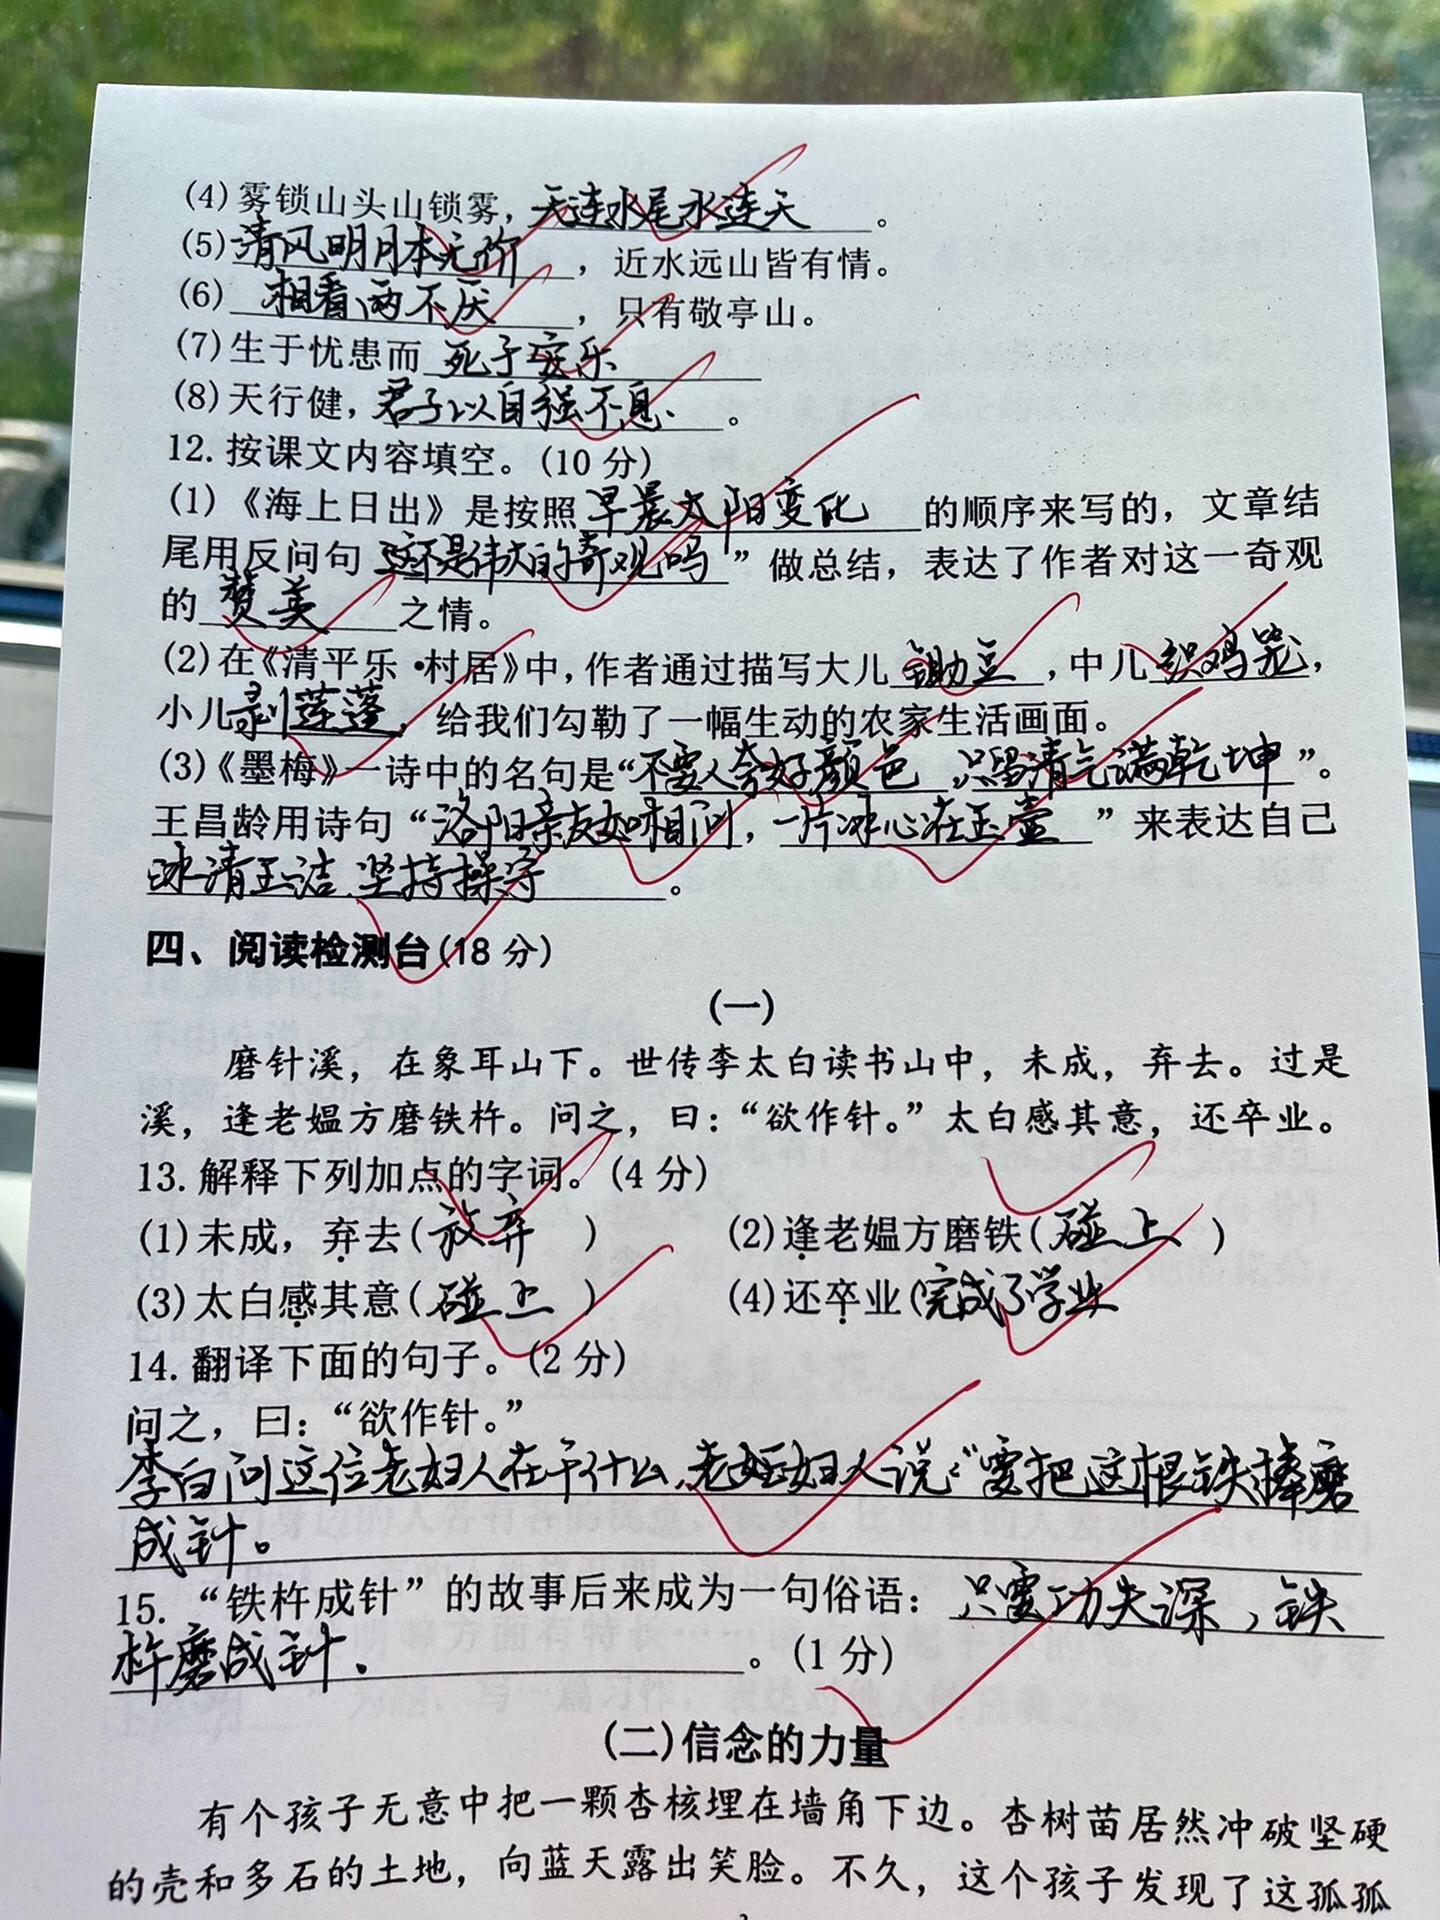 (4)雾锁山头山锁雾,天连水尾水连天。
(5)清风明月本无价,近水远山皆有情。
(6)相看两不厌,只有敬亭山。
(7)生于忧患而死于安乐
(8)天行健,君子以自强不息。
12.按课文内容填空。(10分)
(1)《海上日出》是按照早晨太阳变化的顺序来写的,文章结
尾用反问句这不是伟大的奇观吗”做总结,表达了作者对这一奇观
的赞美之情。
(2)在《清平乐·村居》中,作者通过描写大儿锄豆,中儿织鸡笼,
小儿剥莲蓬,给我们勾勒了一幅生动的农家生活画面。
(3)《墨梅》一诗中的名句是“不要人夸好颜色 只留清气满乾坤”。
王昌龄用诗句“洛阳亲友如相问,一片冰心在玉壶”来表达自己
冰清玉洁.坚持操守。
四、阅读检测台(18分)
(一)
磨针溪,在象耳山下。世传李太白读书山中,未成,弃去。过是
溪,逢老媪方磨铁杵。问之,曰:“欲作针。”太白感其意,还卒业。
13.解释下列加点的字词。(4分)
(1)未成,弃去(放弃) (2)逢老媪方磨铁(碰上)
(3)太白感其意(碰上) (4)还卒业(完成了学业
14.翻译下面的句子。(2分)
问之,曰:“欲作针。”
李白问这位老妇人在干什么,老妇人说:“要把这根铁棒磨
成针。
15.“铁杵成针”的故事后来成为一句俗语:只要功夫深,铁
杵磨成针.。(1分)
(二)信念的力量
有个孩子无意中把一颗杏核埋在墙角下边。杏树苗居然冲破坚硬
的壳和多石的土地,向蓝天露出笑脸。不久,这个孩子发现了这孤孤